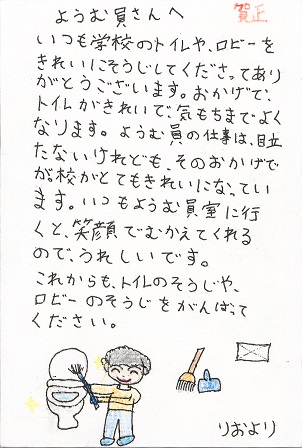 ようむ員さんへ
賀正
いつも学校のトイレや、ロビーを
きれいにそうじしてくださってあり
がとうございます。おかげで、
トイレがきれいで、気もちまでよく
なります。ようむ員の仕事は、目立
たないけれども、そのおかげで
が校がとてもきれいになってい
ます。いつもようむ員室に行
くと、笑顔でむかえてくれる
ので、うれしいです。
これからも、トイレのそうじや、
ロビーのそうじをがんばって
ください。
りおより